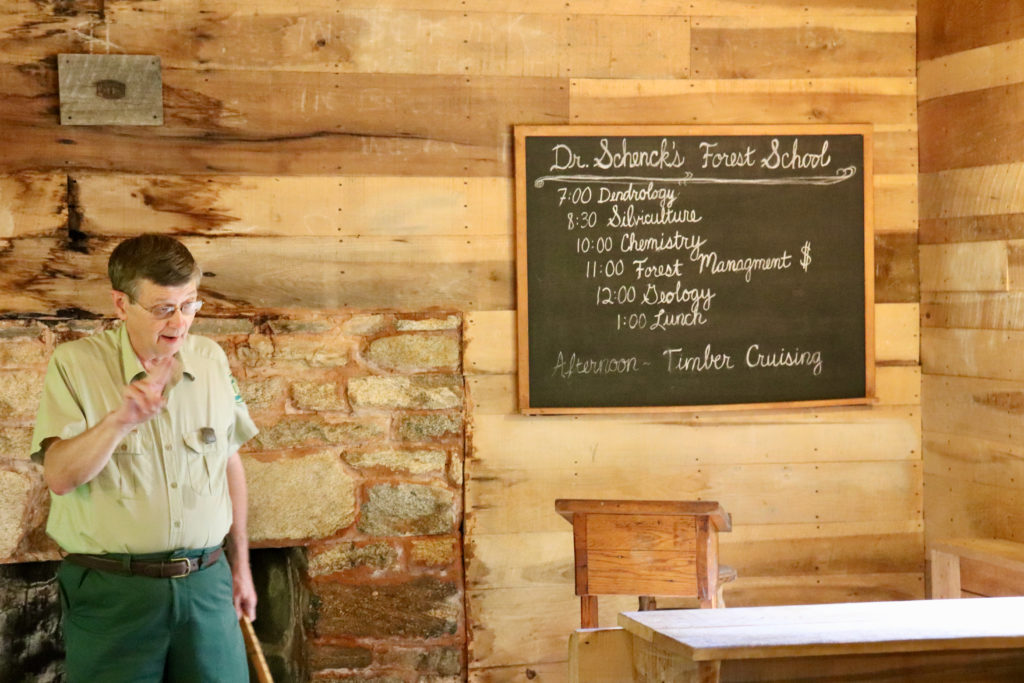 Dr. Schenck's Forest School
7:00 Dendrology
8:30 Silviculture
10:00 Chemistry
11:00 Forest Managment $
12:00 Geology
1:00 Lunch
Afternoon ~ Timber Cruising